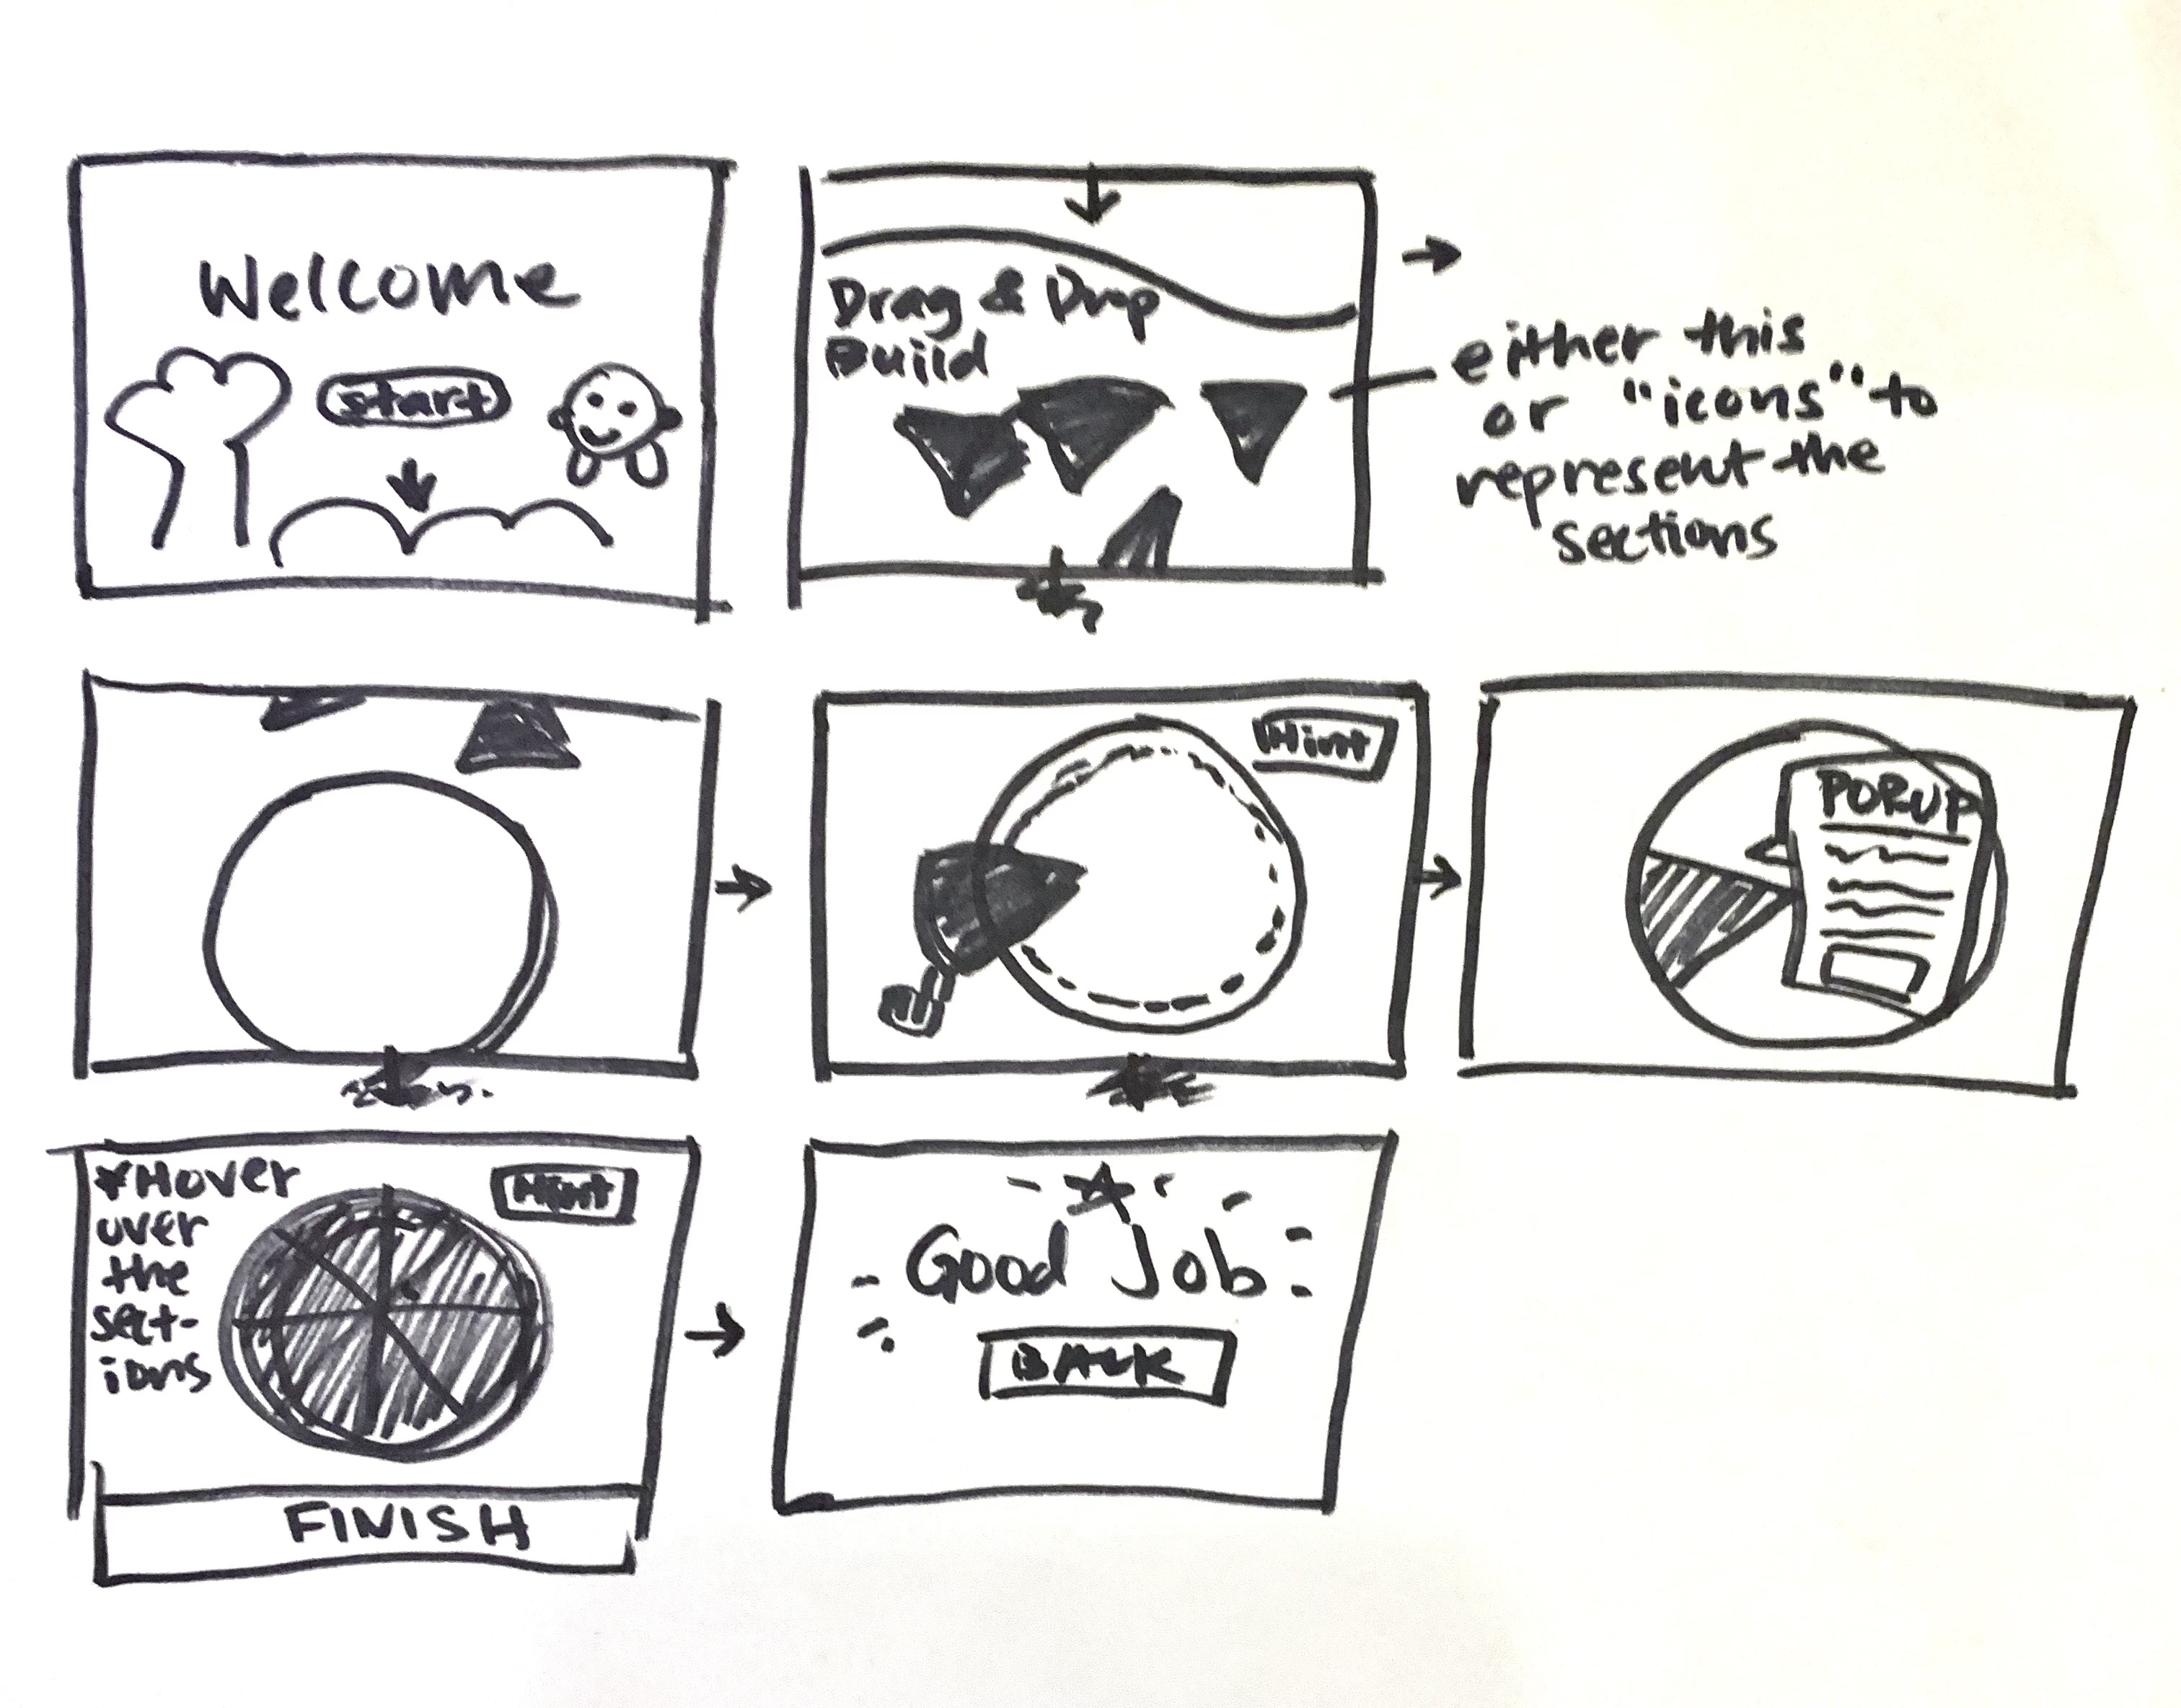 Welcome
start
Drag & Drop
Build
either this
or "icons" to
represent the
sections
Hint
POPUP
*Hover
over
the
sect-
ions
Hint
FINISH
Good Job
BACK